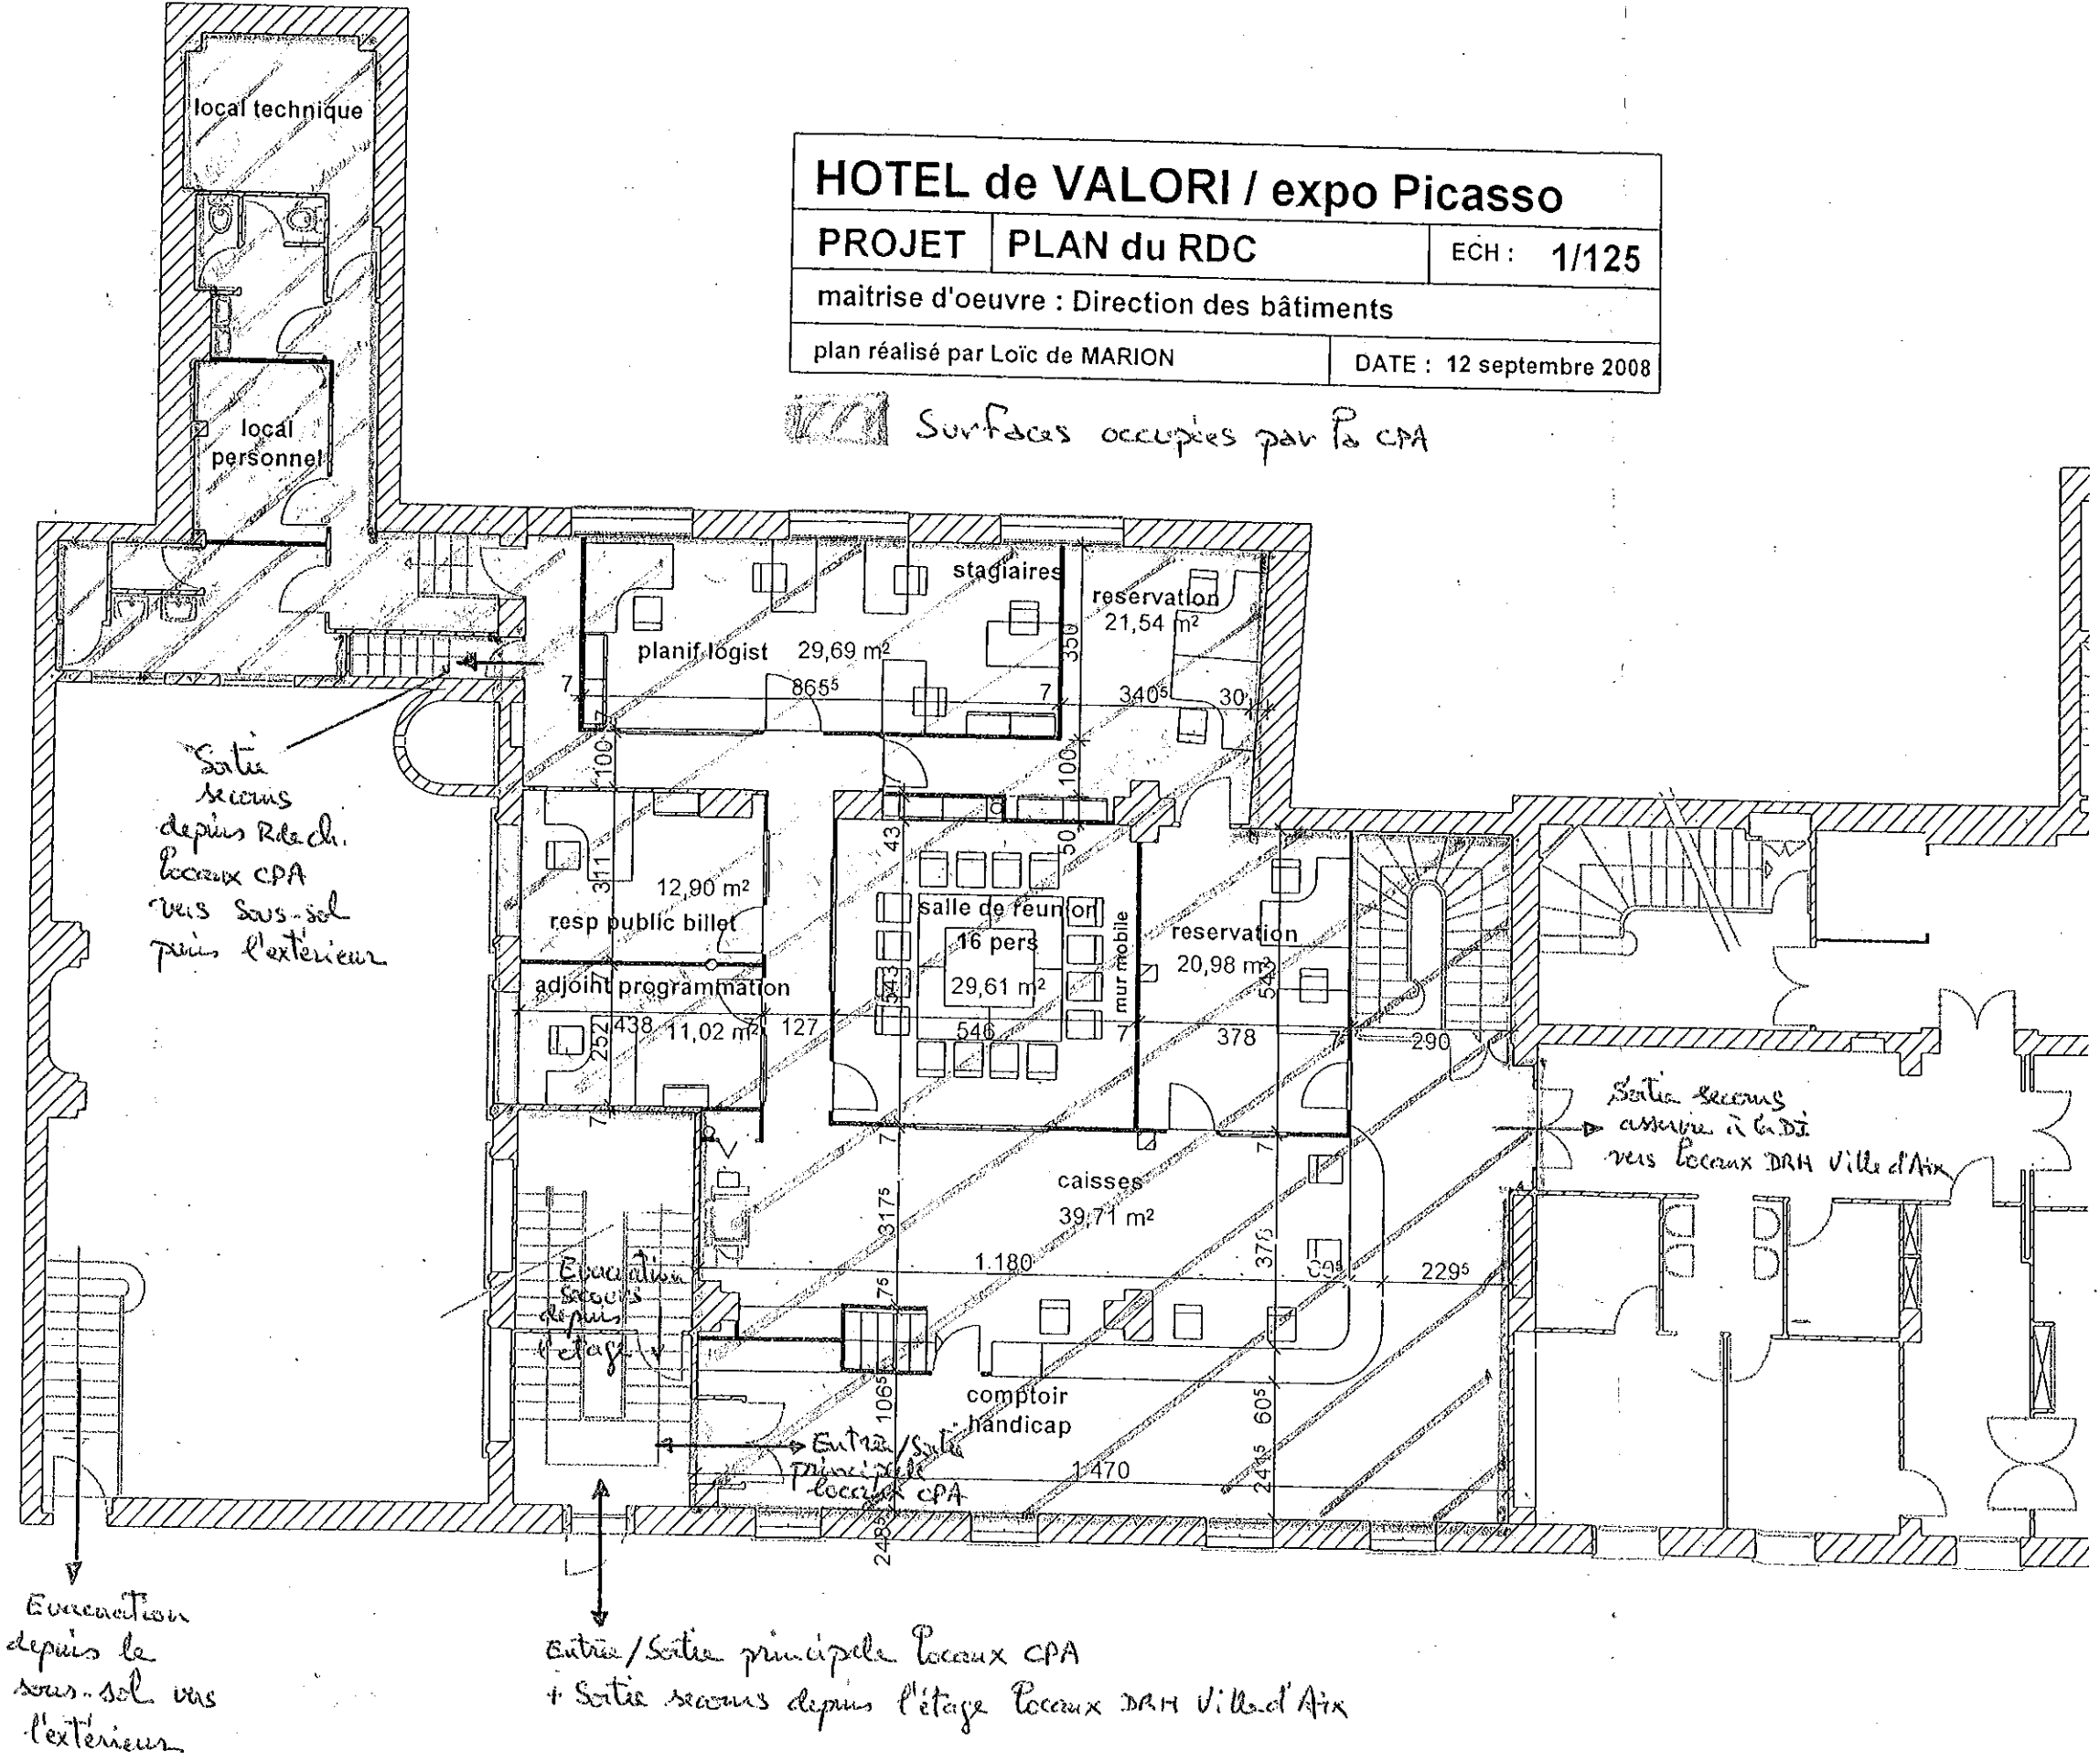 local technique
HOTEL de VALORI / expo Picasso
PROJET PLAN du RDC ECH : 1/125
maitrise d'oeuvre : Direction des bâtiments
plan réalisé par Loïc de MARION DATE : 12 septembre 2008
Surfaces occupées par la CPA
local
personnel
stagiaires
reservation
21,54 m²
planif logist 29,69 m²
350
7 865⁵ 7 340⁵ 30
100 7
100
Sortie
secours
depuis Rdech.
locaux CPA
vers sous-sol
puis l'extérieur
43
50
311
12,90 m²
resp public billet
salle de reunion
16 pers
29,61 m²
543
mur mobile
reservation
20,98 m²
adjoint programmation
11,02 m²
252
7
438 7 127 546 7 378 7 290
7
7
7
Sortie secours
asservie à la DI
vers locaux DRH Ville d'Aix
caisses
39,71 m²
317⁵
378
1.180
229⁵
75
Evacuation
secours
depuis
l'étage
106⁵
comptoir
handicap
605
Entrée/Sortie
principale
locaux CPA
1.470
241⁵
248⁵
Evacuation
depuis le
sous-sol vers
l'extérieur
Entrée/Sortie principale locaux CPA
+ Sortie secours depuis l'étage locaux DRH Ville d'Aix